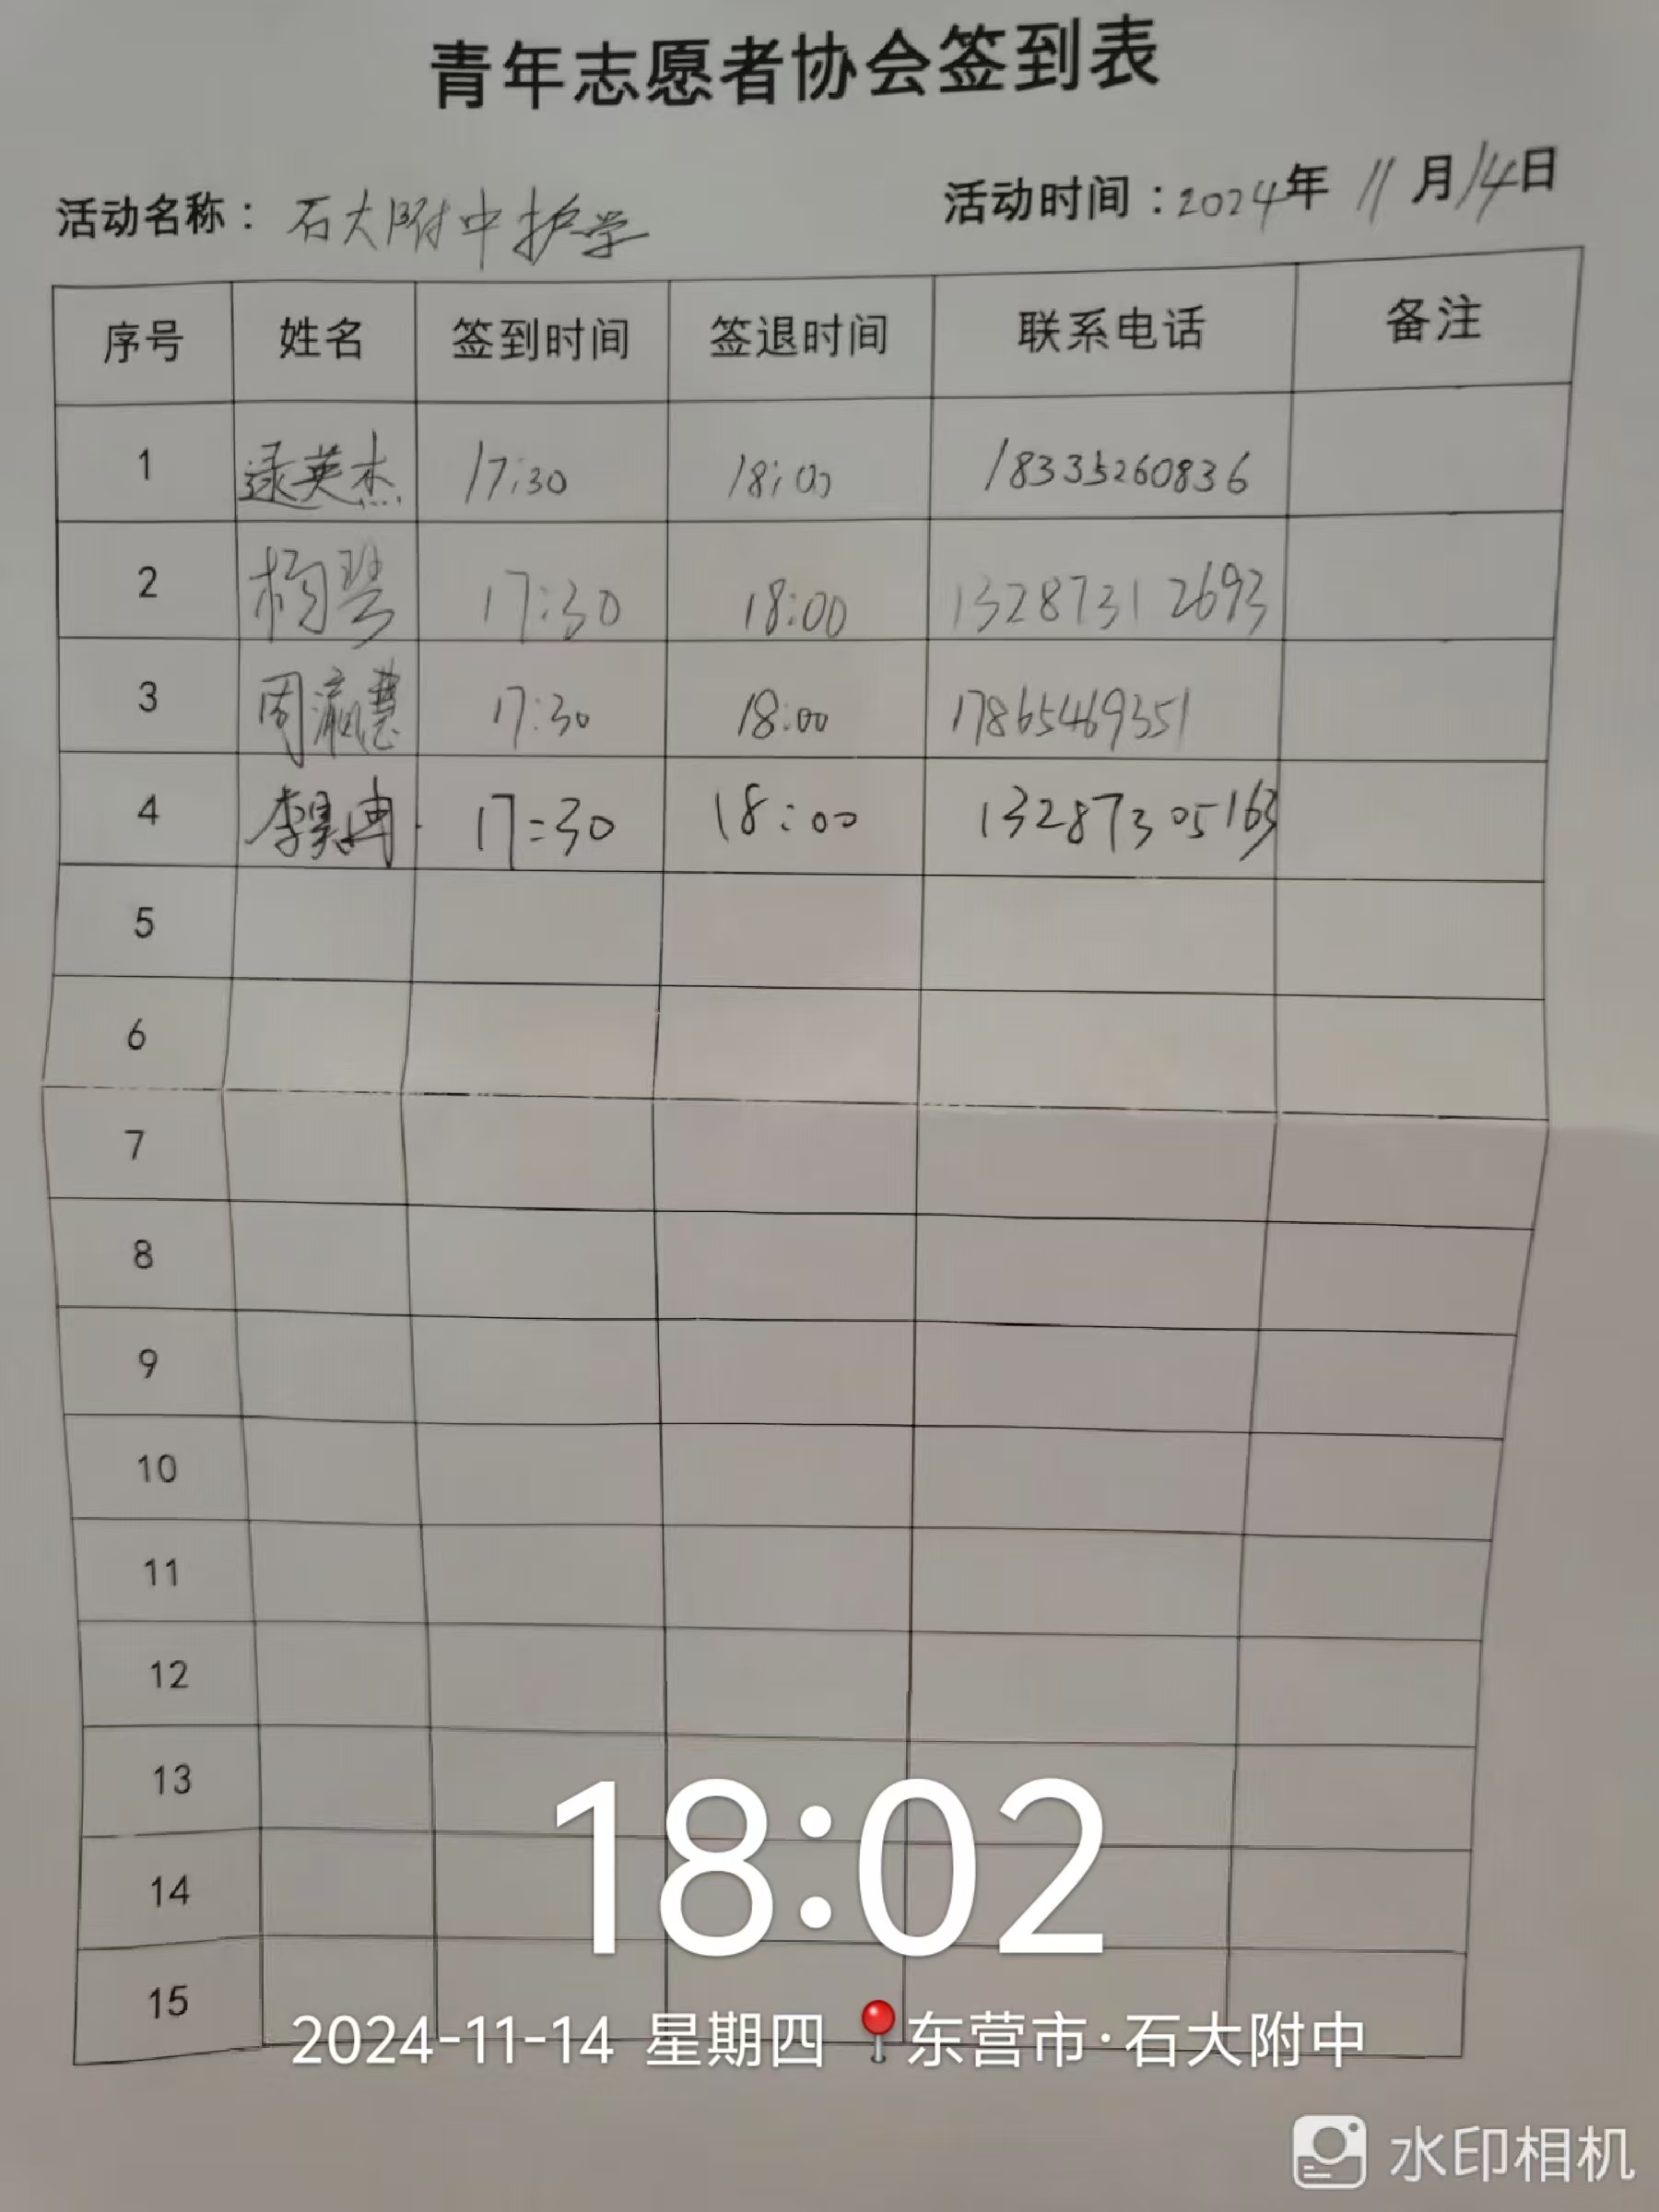 青年志愿者协会签到表
活动名称：石大附中护学 活动时间：2024年 11月14日
序号 姓名 签到时间 签退时间 联系电话 备注
1 逯英杰 17:30 18:00 18335260836
2 杨琴 17:30 18:00 13287312693
3 周瀛慧 17:30 18:00 17865469351
4 李昊冉 17:30 18:00 13287305163
5
6
7
8
9
10
11
12
13
14
15
18:02
2024-11-14 星期四 东营市·石大附中
水印相机